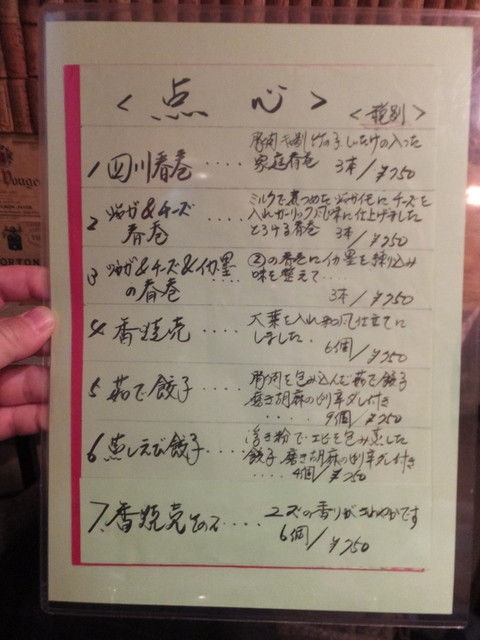 <点心>
<税別>
1 四川春巻 ····
豚肉 けの子、しいたけの入った
家庭春巻 3本/¥750
2 ジャガ&チーズ
春巻 ····
ミルクで煮つめたジャガイモにチーズを
入れガーリック風味に仕上げました
とろける春巻 3本/¥750
3 ジャガ&チーズ&イカ墨
の春巻 ····
②の春巻にイカ墨を練り込み
味を整えて····
3本/¥750
4 香焼売 ····
大葉を入れ和風仕立てに
しました. 6個/¥750
5 茹で餃子 ····
豚肉を包み込んだ茹で餃子
磨き胡麻のピリ辛ダレ付き
···· 9個/¥750
6 蒸しえび餃子 ····
浮き粉でエビを包み蒸した
餃子 磨き胡麻のピリ辛ダレ付き
···· 4個/¥750
7. 香焼売 ····
ズの香りがさわやかです
6個/¥750
ORTON